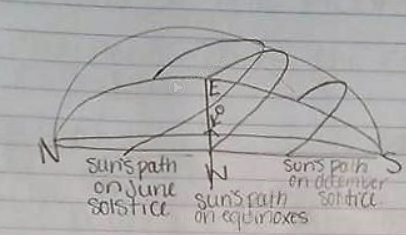 E
N
S
W
sun's path
on june
solstice
sun's path
on equinoxes
sun's path
on december
solstice